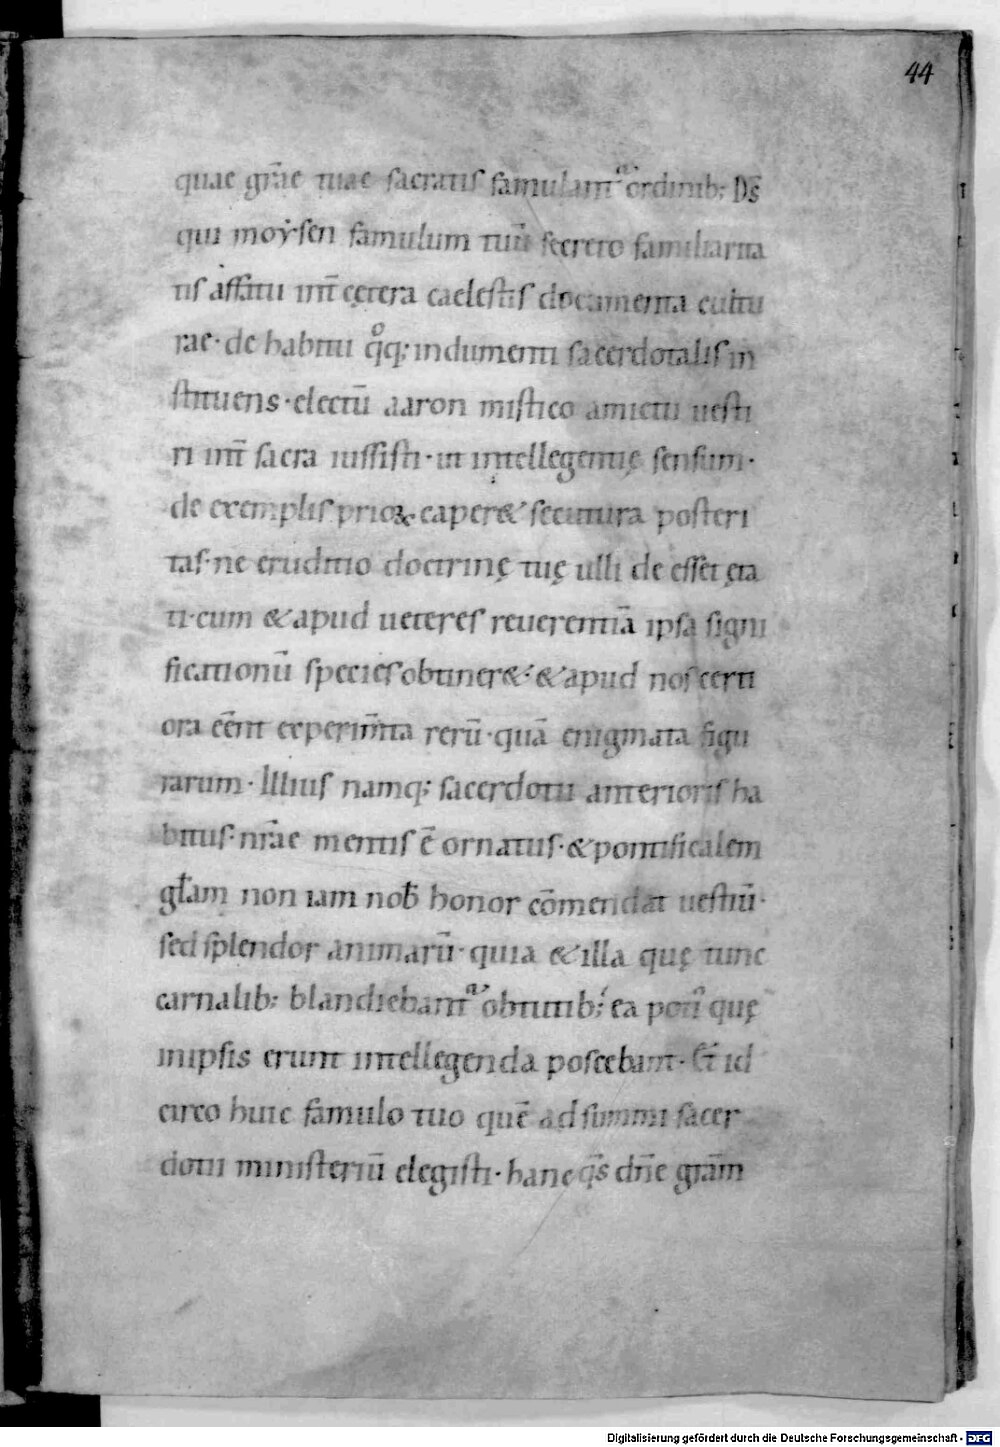 44
quae gr̄ae tuae sacratis famulant᷑ ordinib; D̄s
qui moẏsen famulum tuū secreto familiarita
tis affatu int̄ cętera caelestis documenta cultu
rae· de habitu qͦq; indumenti sacerdotalis in
stituens· electū aaron mistico amictu uesti
ri int̄ sacra iussisti· ut intellegentię sensum·
de exemplis prioꝝ caper& secutura posteri
tas· ne eruditio doctrinę tuę ulli de esset ęta
ti· cum & apud ueteres reuerentiā ipsa signi
ficationū species obtiner&· & apud nos certi
ora eēnt experim̄ta rerū· quā enigmata figu
rarum· Illius namq; sacerdotii anterioris ha
bitus· nr̄ae mentis ē ornatus· & pontificalem
gl̄am non iam nob̄ honor cōmendat uestiū·
sed splendor animarū· quia & illa quę tunc
carnalib; blandiebant᷑ obtutib; ea poti᷒ quę
in ipsis erunt intellegenda poscebant· Et id
circo huic famulo tuo quē ad summi sacer
dotii ministeriū elegisti· hanc q̄s dn̄e grām
Digitalisierung gefördert durch die Deutsche Forschungsgemeinschaft - DFG